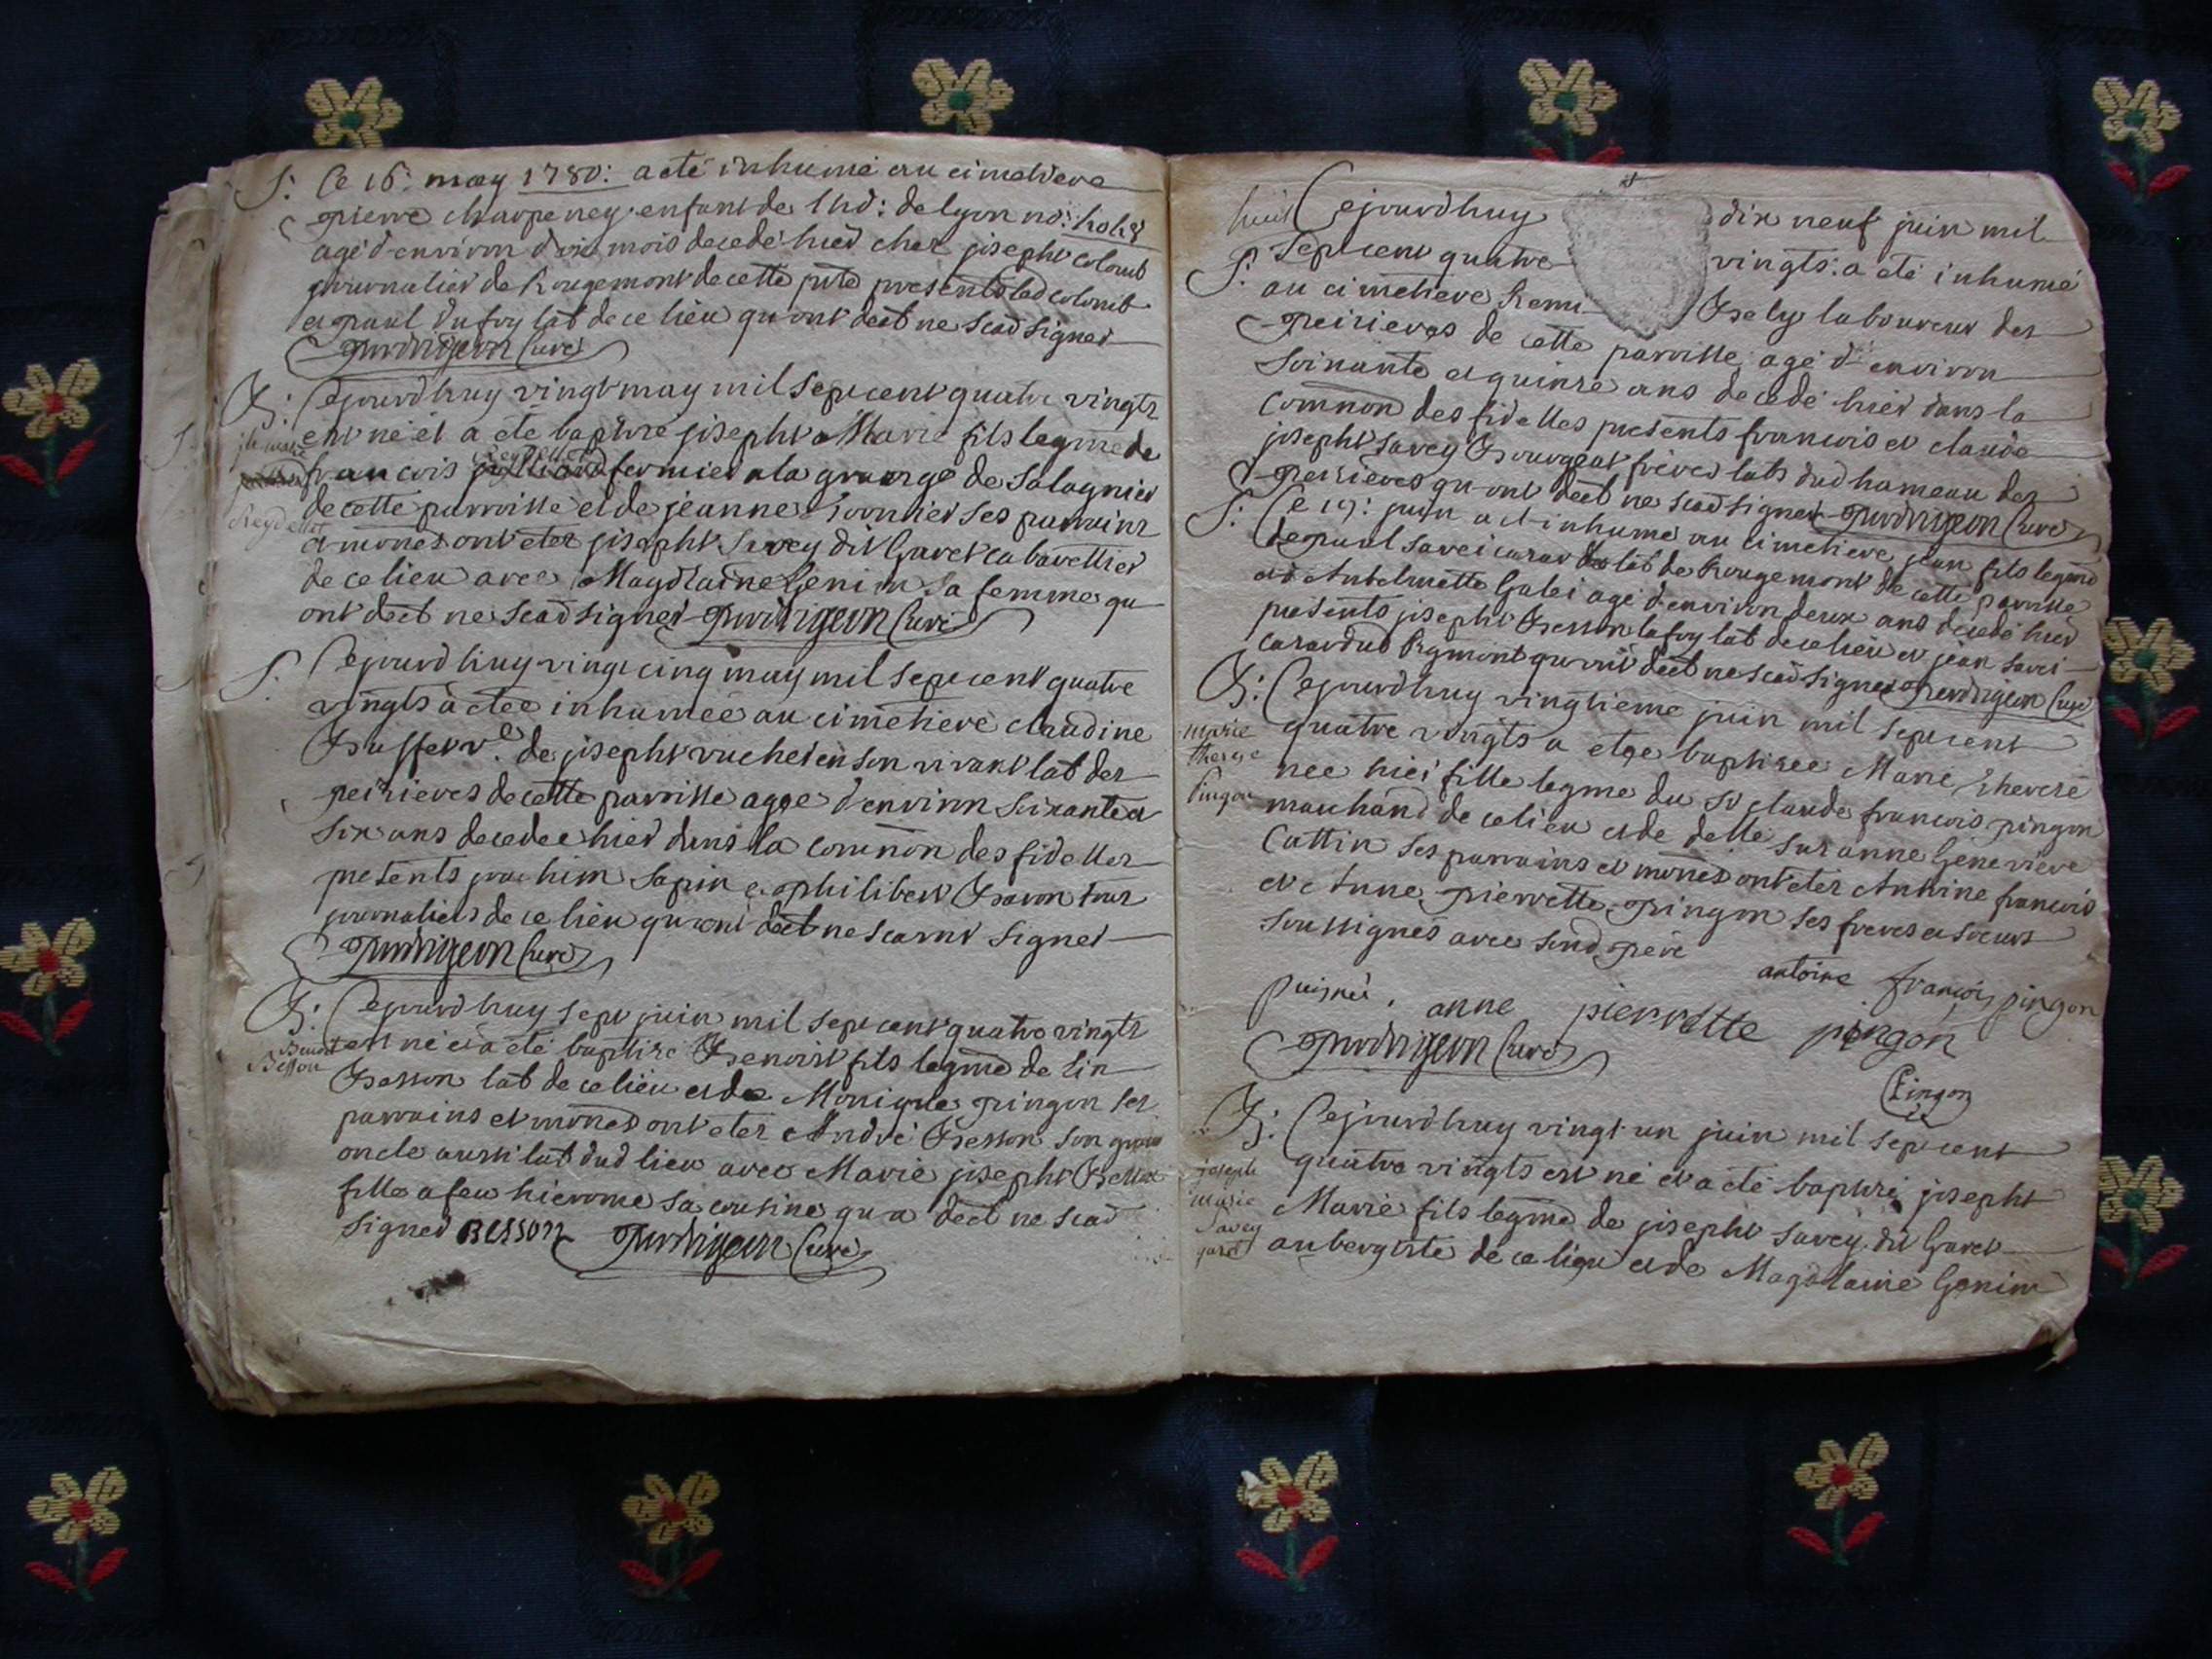 S: Ce 16: may 1780: a eté inhumé au cimetiere
pierre charpeney enfant de lhd: de lyon no:
agé d'environ mois decedé hier chez joseph colomb
journalier de Rougemont de cette presents led colomb
et paul dufoy lab de ce lieu qu ont decl ne scad signer
prodrigeon Curé
B: Cejourdhuy vingt may mil sept cent quatre vingts
est né et a eté baptisé joseph Marie fils legme de
francois Reydellet fermier a la grange de Salagnier
de cette parroisse et de jeanne ses parrains
Reydellet
et mones ont eter joseph Savey dit Garet cabarettier
de ce lieu avec Magdlaine Genin sa femme qu
ont decl ne scad signer prodrigeon Curé
S. Cejourdhuy vingt cinq may mil sept cent quatre
vingts a etee inhumée au cimetiere claudine
Buffet ve. de joseph vuchet en son vivant lab des
peirieres de cette parroisse agee d'environ soixante et
six ans decedee hier dans la comñon des fidelles
presents joachim Sapin et philibert
journaliers de ce lieu qu ont decl ne scavnt signer
prodrigeon Curé
B: Cejourdhuy sept juin mil sept cent quatre vingts
Benoit
Besson
est né et a eté baptisé Benoist fils legme de
Besson lab de ce lieu et de Monique pingon ses
parrains et monés ont eter André Besson son grand
oncle aussi lab dud lieu avec Marie joseph Besson
fille a feu hierome sa cousine qu a decl ne scad
signer BESSON prodrigeon Curé
Cejourdhuy dix neuf juin mil
S: Sept cent quatre vingts: a eté inhumé
au cimetiere Remi Isely laboureur des
peirieres de cette parroisse agé d'environ
soixante et quinze ans decedé hier dans la
comñon des fidelles presents francois et claude
joseph Savey Bourgeat freres labs dud hameau des
peirieres qu ont decl ne scad signer prodrigeon Curé
S: Ce 19: juin a eté inhumé au cimetiere jean fils legme
de paul Savei lab de Rougemont de cette parroisse
et d'Antelmette Galei agé d'environ deux ans decedé hier
presents joseph Besson lafoy lab de ce lieu et jean Savei
qu ont decl ne scad signer prodrigeon Curé
B: Cejourdhuy vingtieme juin mil sept cent
marie
therese
Pingon
quatre vingts a etee baptisee Marie Therese
nee hier fille legme du Sr claude francois pingon
marchand de ce lieu et de delle suzanne Genevieve
Cattin ses parrains et monés ont eter Antoine francois
et Anne pierrette pingon ses freres et soeurs
soussignés avec sond pere
antoine françois pingon
puisné. anne pierrette pingon
prodrigeon Curé
Pingon
B: Cejourdhuy vingt un juin mil sept cent
joseph
marie
Savey
garet
quatre vingts est né et a eté baptisé joseph
Marie fils legme de joseph Savey dit Garet
aubergiste de ce lieu et de Magdlaine Genin